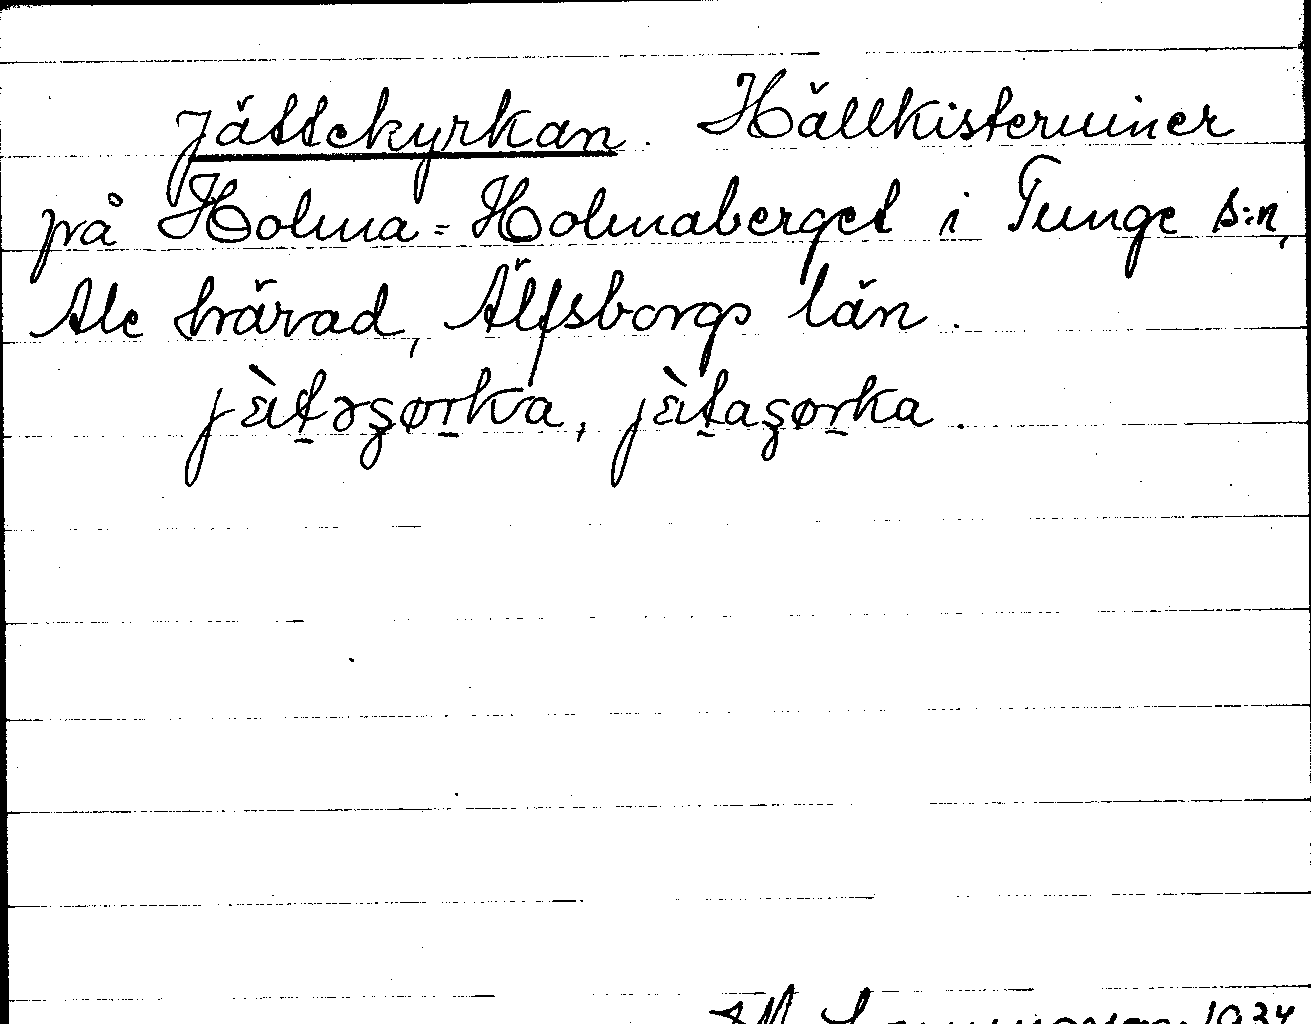 Jättekyrkan. Hällkisteruiner
på Holma = Holmaberget i Tunge s:n,
Ale härad, Älfsborgs län.
jɛ̀t̲əʂør̲ka, jɛ̀t̲aʂør̲ka.
1934